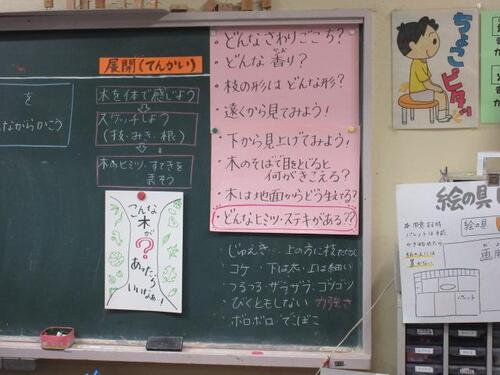 展開(てんかい)
を
ながらかこう
木を体で感じよう
スケッチしよう
(枝・みき・根)
木のヒミツ・すてきを
表そう
こんな
木が
?
あったら
いいなぁ!
・どんなさわりごこち?
・どんな香り?
・枝の形はどんな形?
・遠くから見てみよう!
・下から見上げてみよう!
・木のそばで目をとじると
何がきこえる?
・木は地面からどう生えてる?
・どんなヒミツ・ステキがある??
じゅえき
上の方に枝
コケ ・下は太・上は細い
つるつる・ザラザラ、ゴツゴツ
びくともしない 力強さ
ボロボロ でこぼこ
ちょこ
ピタッ
絵の具
絵の具
パレット